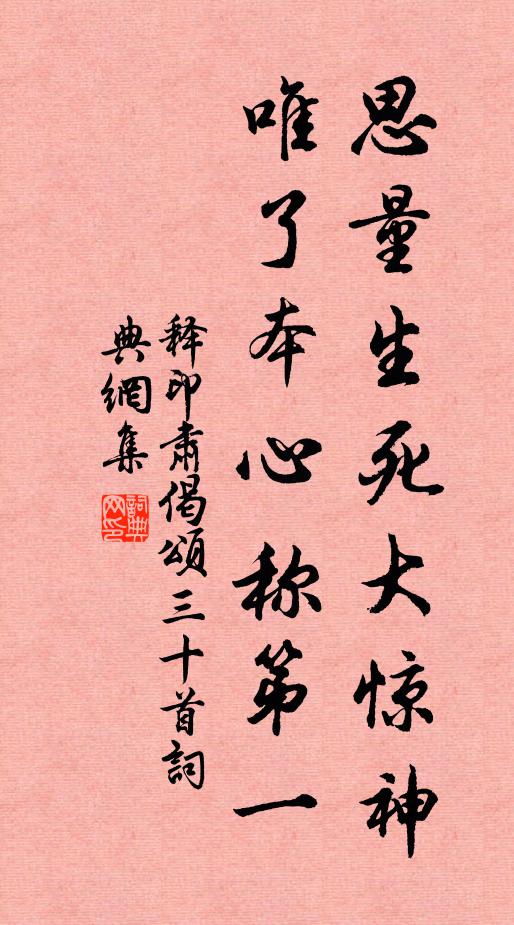 思量生死大惊神
唯了本心称第一
释印肃偈颂三十首詞
典網集
詞典网印